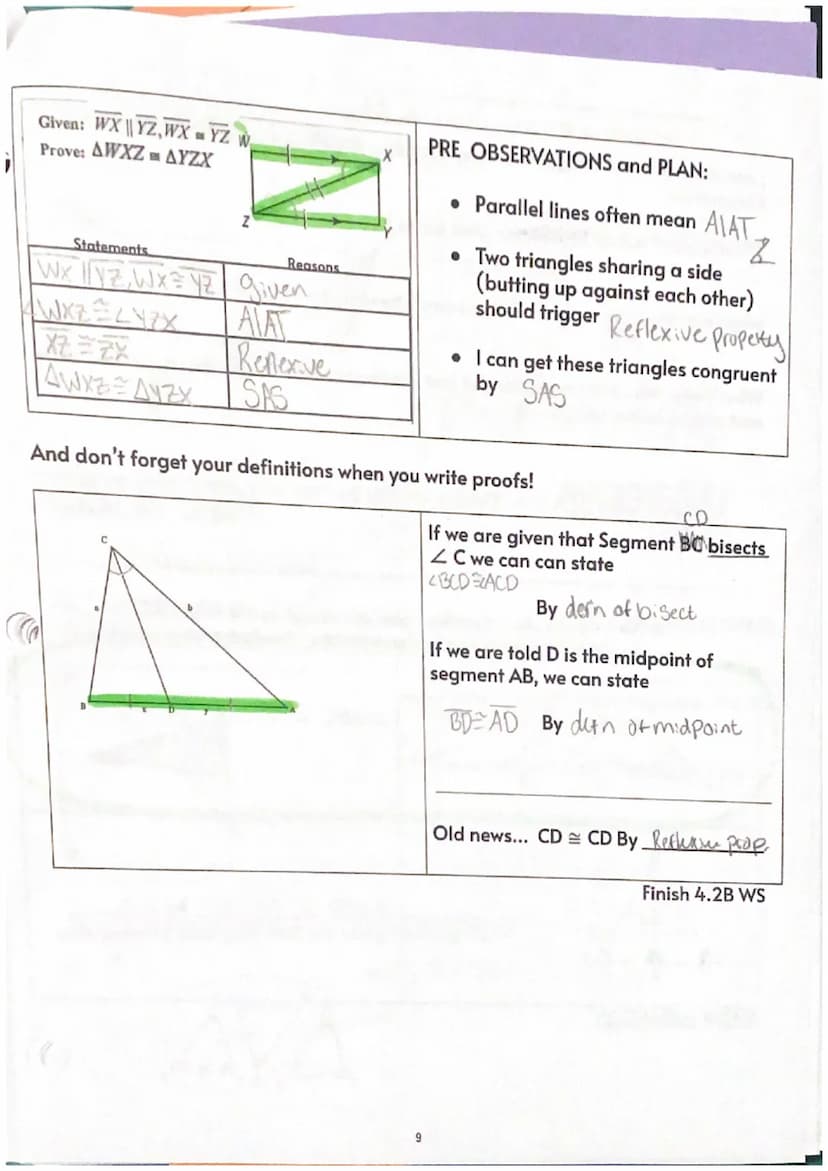 Given: WX ∥ YZ, WX ≅ YZ
Prove: ΔWXZ ≅ ΔYZX
W
X
Z
Y
Statements
Reasons
WX ∥ YZ, WX ≅ YZ
given
∠WXZ ≅ ∠YZX
AIAT
XZ ≅ ZX
Reflexive
ΔWXZ ≅ ΔYZX
SAS
PRE OBSERVATIONS and PLAN:
• Parallel lines often mean AIAT
Z
• Two triangles sharing a side
(butting up against each other)
should trigger Reflexive property
• I can get these triangles congruent
by SAS
And don't forget your definitions when you write proofs!
C
b
B
D
A
CD
If we are given that Segment BC bisects
∠ C we can can state
∠BCD≅∠ACD
By defn of bisect
If we are told D is the midpoint of
segment AB, we can state
BD≅AD By defn of midpoint
Old news... CD ≅ CD By Reflexive prop.
Finish 4.2B WS
9